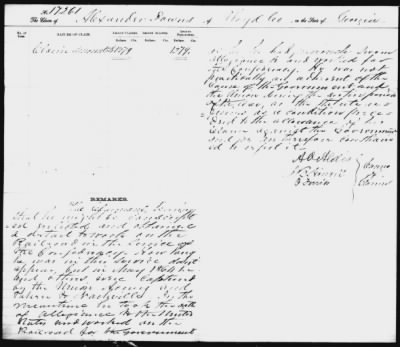 No. 17361
The Claim of Alexander Downs of Floyd Co in the State of Georgia
No. NATURE OF CLAIM. Amount Claimed. Amount Allowed. Amount Disallowed.
Dollars. Cts. Dollars. Cts. Dollars. Cts.
Claim 1279. 1279.
REMARKS.
The Claimant fearing
that he might be conscripted
and obtained
a detail to work on the
Railroad in the service of
the Confederacy. How long
he was in this service don't
appear, but in May 1864 he
and others were captured
by the Union Army and
taken to Nashville. In the
meantime he took the oath
of allegiance to the United
States and worked on the
Railroad for the Government
allegiance to and worked for
the Confederacy. He was not
practically an adherent of the
Cause of the Government and
the Union during the suppression
of the war, as the statute re-
quires as a condition prece-
dent to the allowance of his
claim against the Government
and we therefore are constrained
to reject it.
A O Aldis
J B Howell
O Ferriss
Comrs
of
Claims